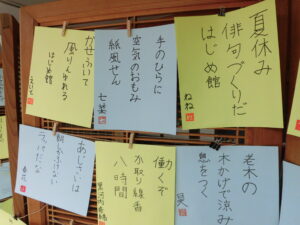 夏休み
俳句づくりだ
はじめ館
ねね
手のひらに
空気のおもみ
紙風せん
七菜
かぜふいて
風りんゆれる
はじめ館
老木の
木かげで涼み
息をつく
昊
働くぞ
か取り線香
八時間
黒河内
あじさいは